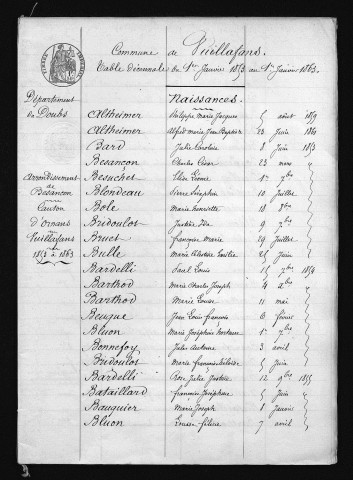 Commune de Vuillafans.
Table Décennale du 1er Janvier 1853 au 1er Janvier 1863.
Département
du Doubs
arrondissement
de
Besançon
Canton
d'Ornans
Vuillafans
1853 à 1863
Naissances.
Altheimer Philippe Marie Jacques 5 août 1859
Altheimer Alfred Marie Jean Baptiste 23 Juin 1861
Bard Julie Caroline 8 Juin 1853
Besançon Charles César 23 mars "
Besuchet 1er 7bre "
Blondeau Pierre Séraphin 10 Juillet "
Bole Marie henriette 18 8bre "
Bridoulot Justine Ida 9 7bre "
Bruet françois Marie 29 Juillet "
Bulle Marie Emilie 25 Juin "
Bardelli Paul Louis 15 7bre 1854
Barthod Marie Charles Joseph 4 "
Barthod Marie Louise 11 mai "
Beuque Jean Louis françois 6 fevrier "
Bluon Marie Joséphine hortense 1er "
Bonnefoy Jules Antoine 3 avril "
Bridoulot Marie 5 Juin "
Bardelli Rose Julie Justine 12 9bre 1855
Bataillard françoise Joséphine 5 Juin "
Bauquier Marie Joseph 8 Janvier "
Bluon Louise 7 avril "